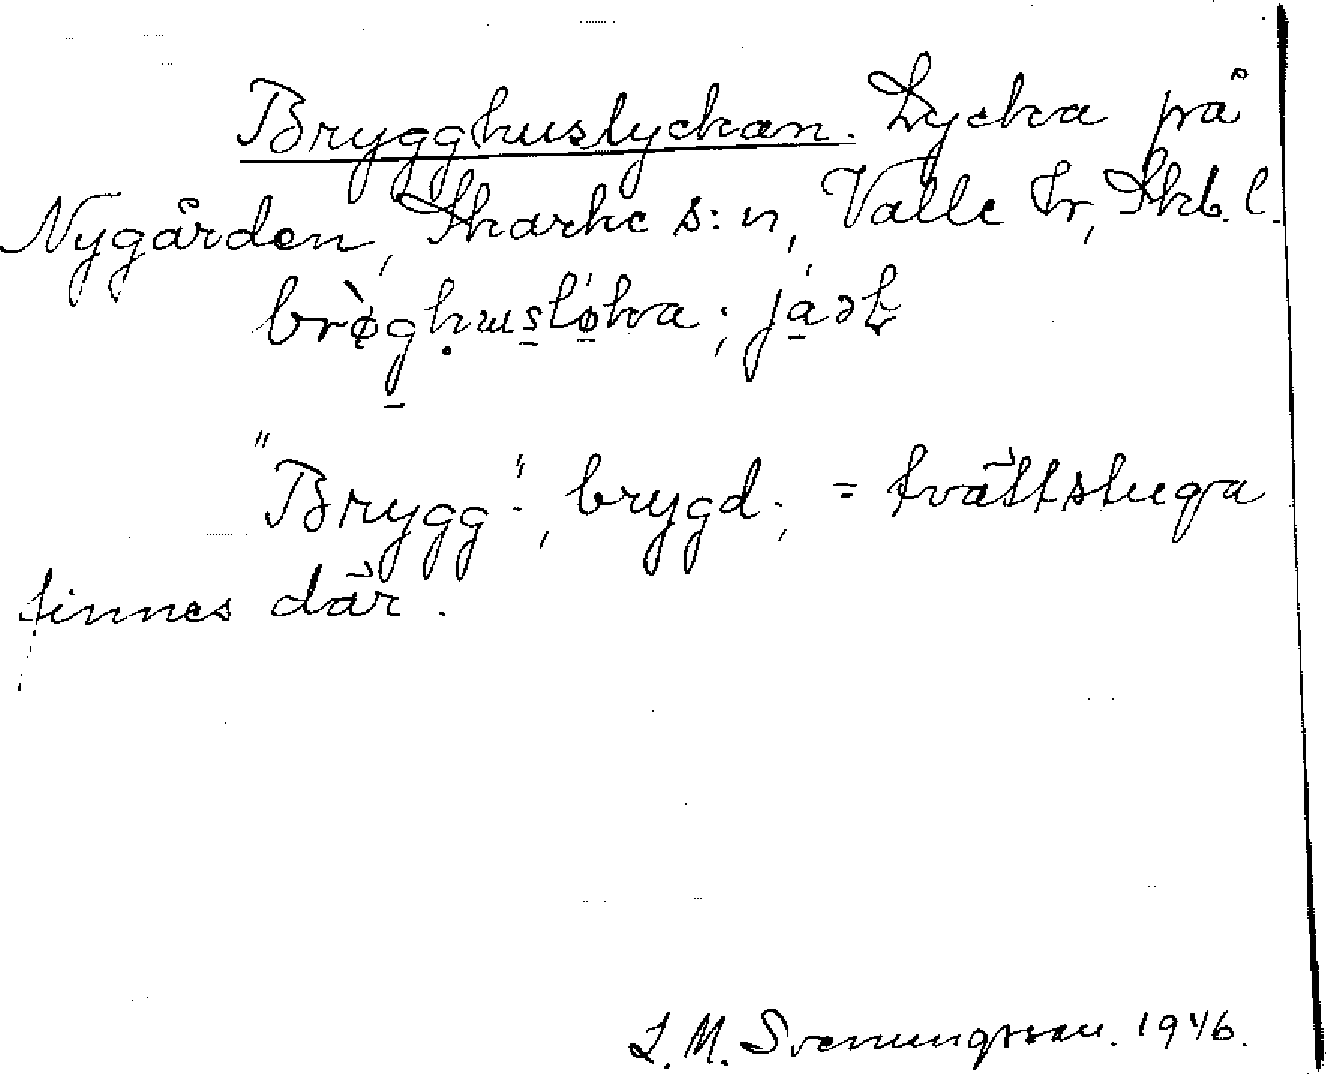 Brygghuslyckan. Lycka på
Nygården, Skarke s:n, Valle hr, Skb. l.
brø̀gḥusløka;
"Brygg", brygd; = tvättstuga
finnes där.
L. M. Svenungsson. 1946.